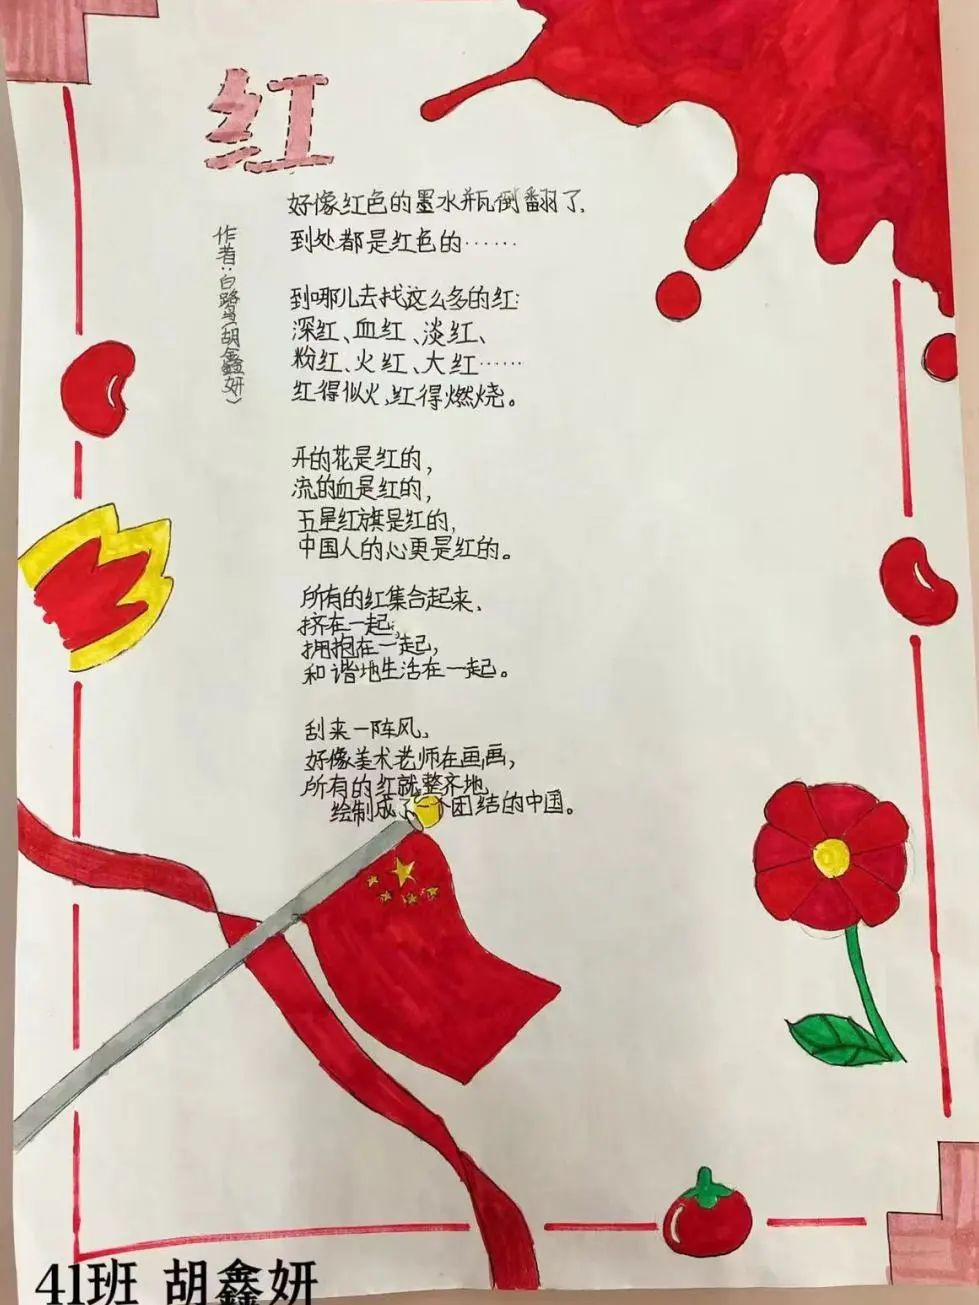 红
作者:白鹭(胡鑫妍)
好像红色的墨水瓶倒翻了,
到处都是红色的……
到哪儿去找这么多的红:
深红、血红、淡红、
粉红、火红、大红……
红得似火,红得燃烧。
开的花是红的,
流的血是红的,
五星红旗是红的,
中国人的心更是红的。
所有的红集合起来,
挤在一起,
拥抱在一起,
和谐地生活在一起。
刮来一阵风,
好像美术老师在画画,
所有的红就整齐地
绘制成了一个团结的中国。
41班 胡鑫妍